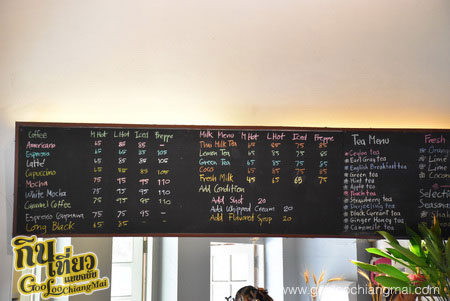 Coffee M.Hot L.Hot Iced Frappe
Americano 65 85 85 -
Espresso 65 85 105
Latte 65 85 85 105
Capuccino 65 85 85 105
Mocha 75 95 95 110
White Mocha 75 95 95 110
Caramel Coffee 75 95 95 110
Espresso
Long Black 65 85
Milk Menu M.Hot L.Hot Iced Frappe
Thai Milk Tea 75 85
Lemon Tea 65 85 75 85
Green Tea 65 85 75 85
Coco 65 85 75 85
Fresh Milk 45 65 65 75
Add Condition
Add Shot 20
Add Whipped Cream 20
Add Flavored Syrup 20
Tea Menu
Ceylon tea
Earl Grey tea
English Breakfast tea
Green tea
Mint tea
Apple tea
Peach tea
Strawberry tea
Darjeeling tea
Black Currant tea
Ginger Honey tea
Camomile tea
Fresh
Orange
Lime
Lime
Coco
Select
Season
กินเที่ยว
แบบฉบับ
GooLooChiangMai
www.gooloochiangmai.com